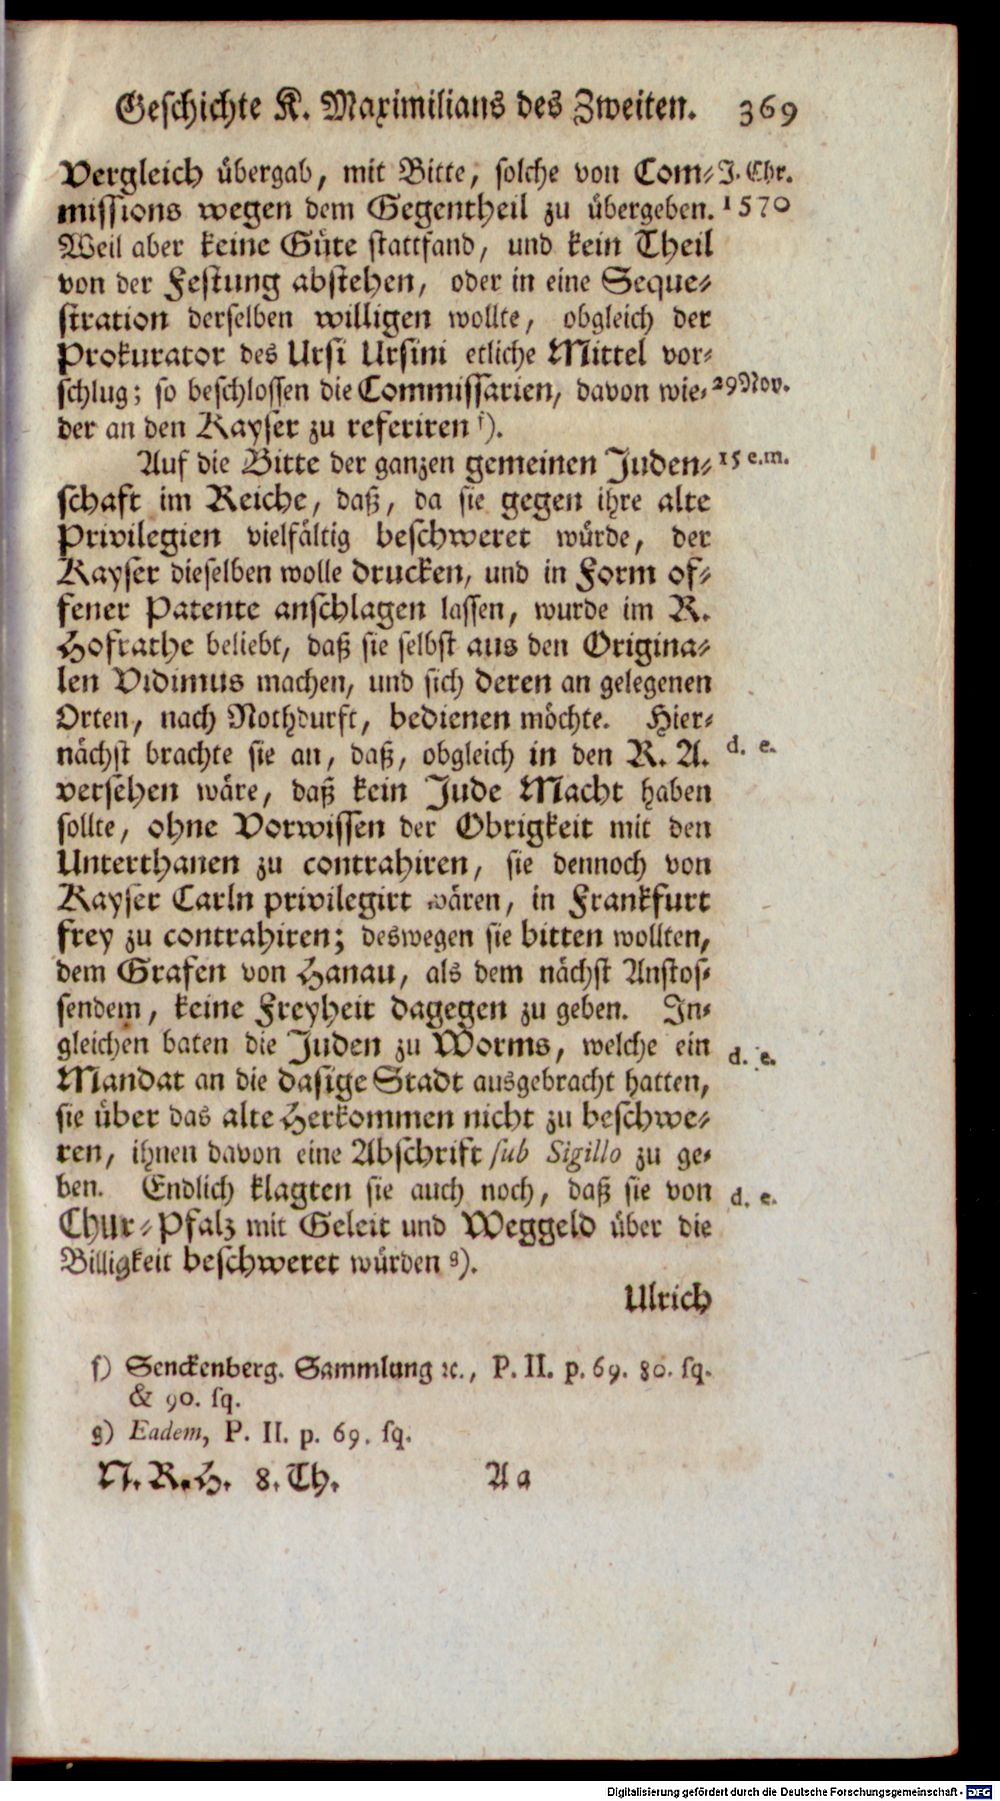 Geschichte K. Maximilians des Zweiten. 369
Vergleich übergab, mit Bitte, solche von Com- J. Chr.
missions wegen dem Gegentheil zu übergeben. 1570
Weil aber keine Güte stattfand, und kein Theil
von der Festung abstehen, oder in eine Seque-
stration derselben willigen wollte, obgleich der
Prokurator des Ursi Ursini etliche Mittel vor-
schlug; so beschlossen die Commissarien, davon wie- 29 Nov.
der an den Kayser zu referiren f).
Auf die Bitte der ganzen gemeinen Juden- 15 e.m.
schaft im Reiche, daß, da sie gegen ihre alte
Privilegien vielfältig beschweret würde, der
Kayser dieselben wolle drucken, und in Form of-
fener Patente anschlagen lassen, wurde im R.
Hofrathe beliebt, daß sie selbst aus den Origina-
len Vidimus machen, und sich deren an gelegenen
Orten, nach Nothdurft, bedienen möchte. Hier-
nächst brachte sie an, daß, obgleich in den R. A. d. e.
versehen wäre, daß kein Jude Macht haben
sollte, ohne Vorwissen der Obrigkeit mit den
Unterthanen zu contrahiren, sie dennoch von
Kayser Carln privilegirt wären, in Frankfurt
frey zu contrahiren; deswegen sie bitten wollten,
dem Grafen von Hanau, als dem nächst Anstos-
sendem, keine Freyheit dagegen zu geben. In-
gleichen baten die Juden zu Worms, welche ein d. e.
Mandat an die dasige Stadt ausgebracht hatten,
sie über das alte Herkommen nicht zu beschwe-
ren, ihnen davon eine Abschrift sub Sigillo zu ge-
ben. Endlich klagten sie auch noch, daß sie von d. e.
Chur-Pfalz mit Geleit und Weggeld über die
Billigkeit beschweret würden g).
Ulrich
f) Senckenberg. Sammlung ꝛc., P. II. p. 69. 80. sq.
& 90. sq.
g) Eadem, P. II. p. 69. sq.
N. R. H. 8. Th. A a
Digitalisierung gefördert durch die Deutsche Forschungsgemeinschaft - DFG